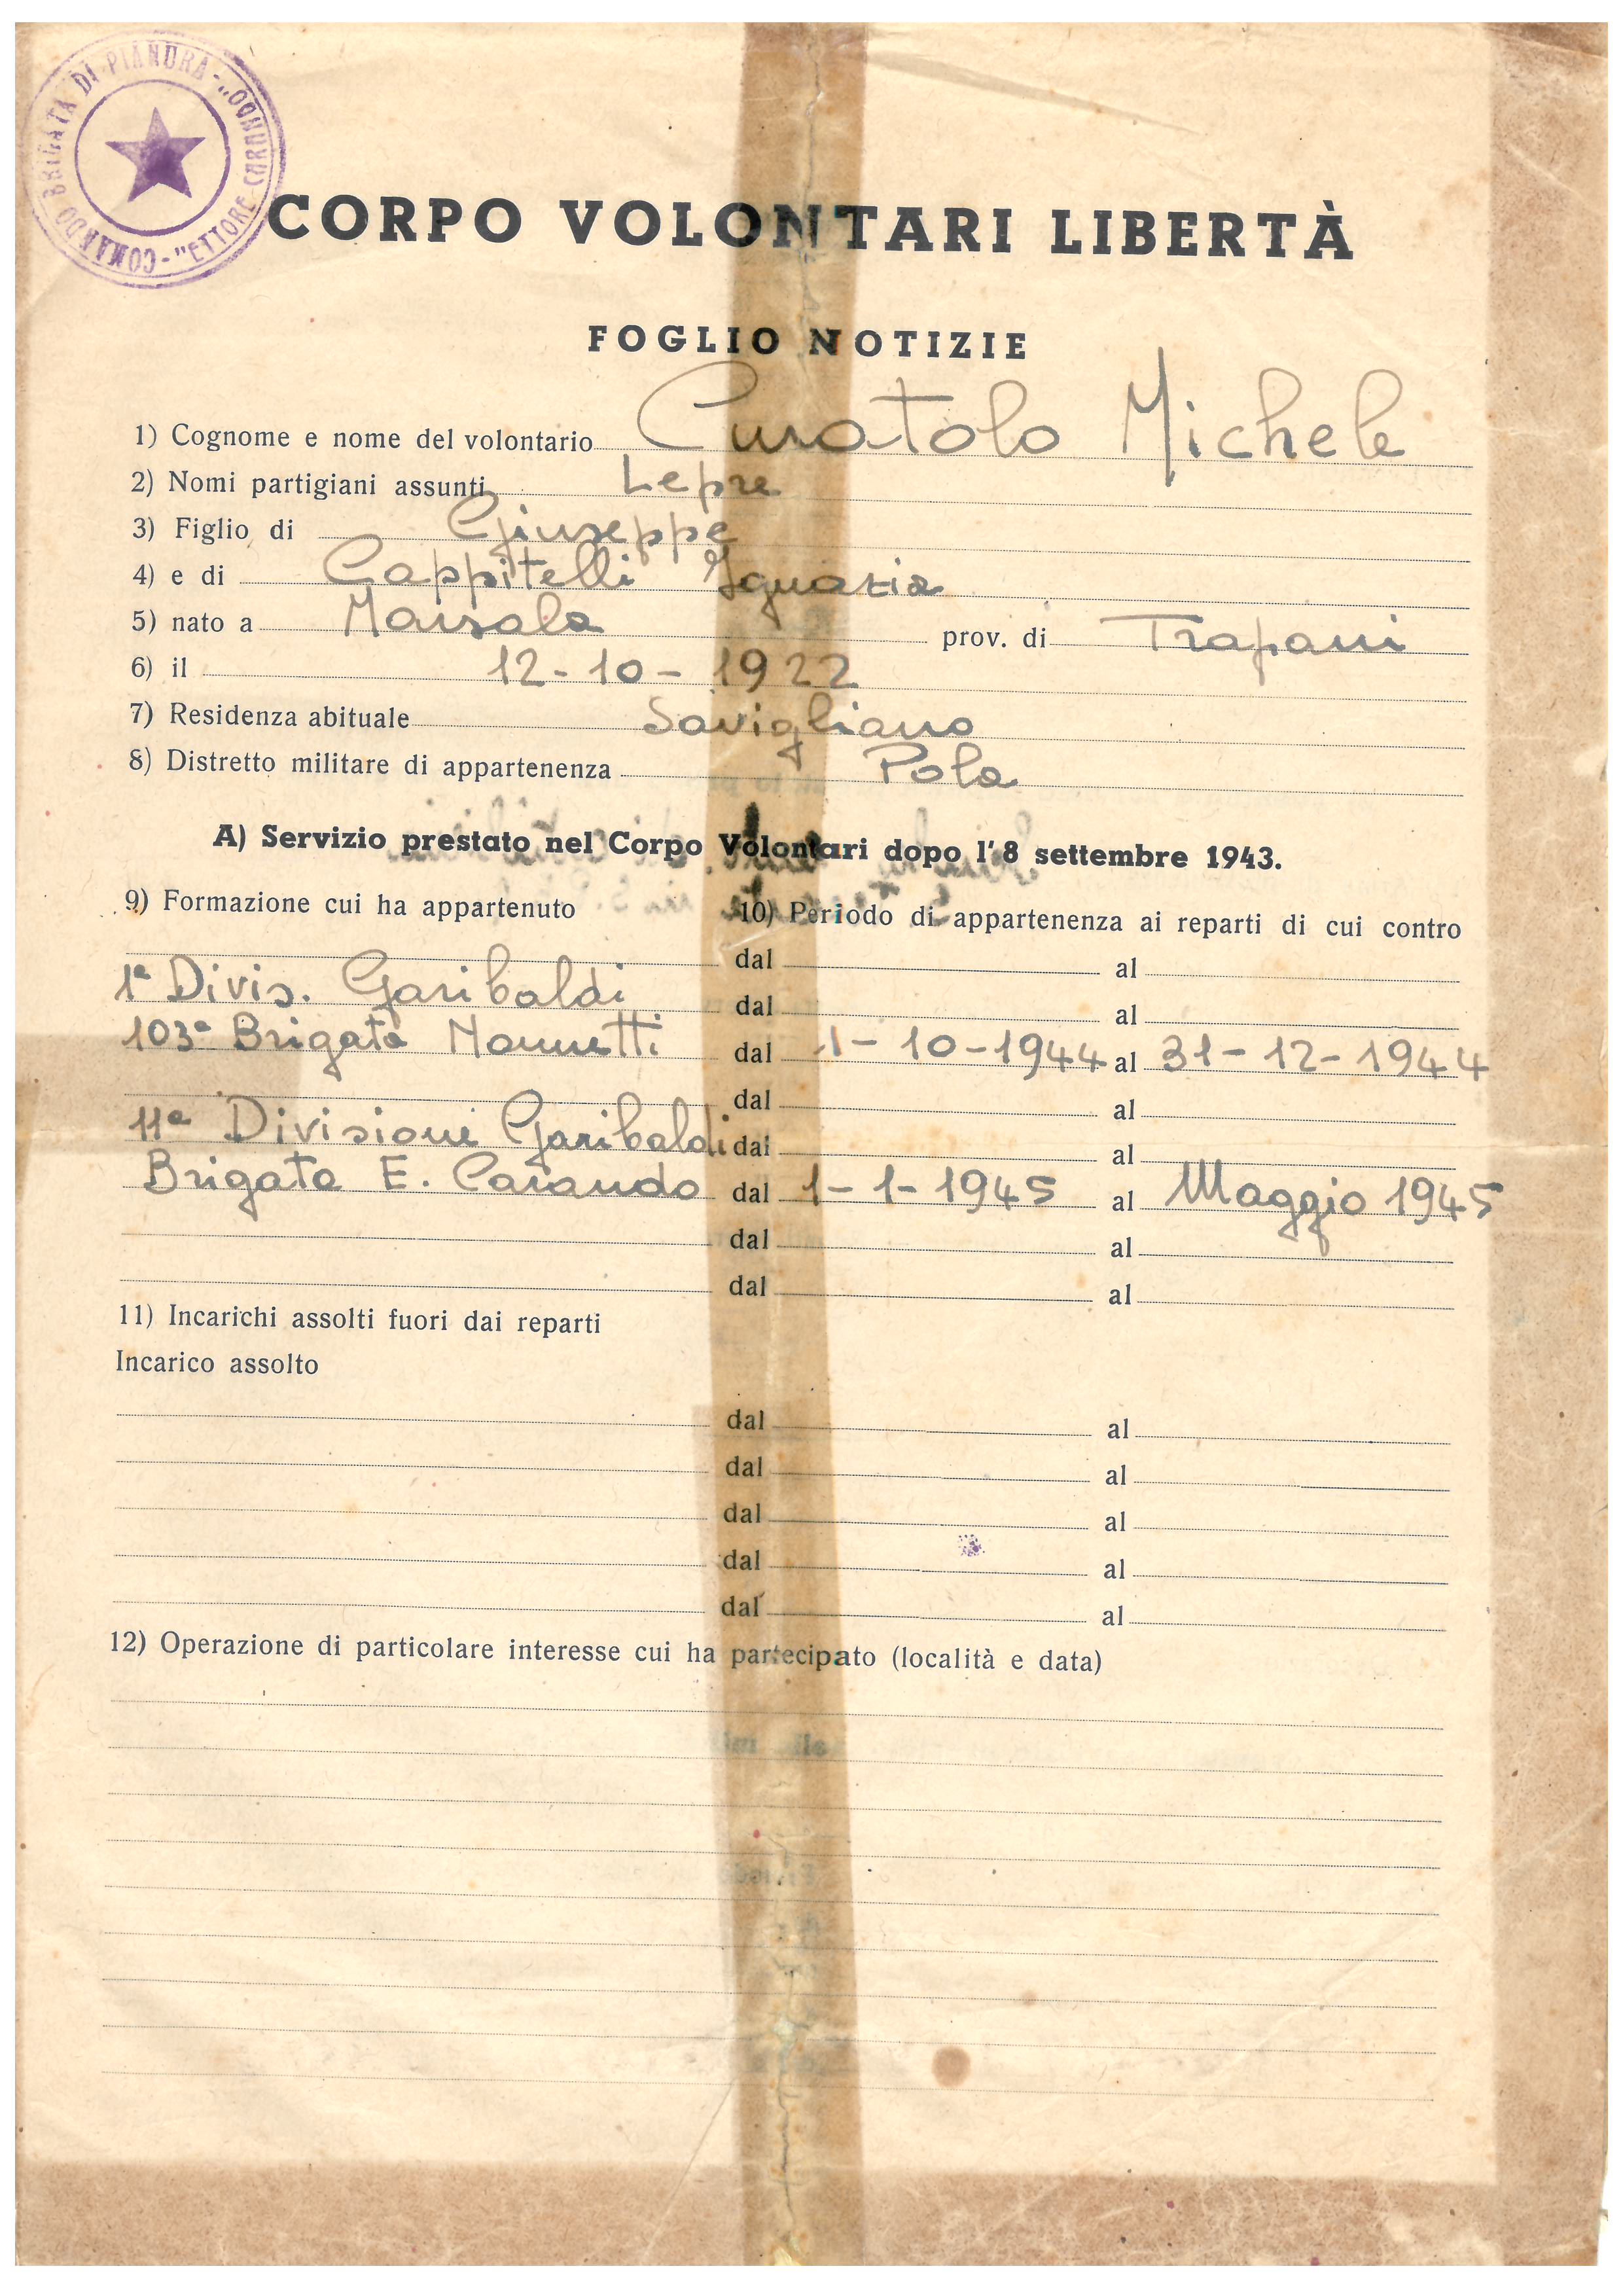 COMANDO BRIGATA DI PIANURA - "ETTORE CARANDO"
CORPO VOLONTARI LIBERTÀ
FOGLIO NOTIZIE
1) Cognome e nome del volontario Curatolo Michele
2) Nomi partigiani assunti Lepre
3) Figlio di Giuseppe
4) e di Cappitelli Ignazia
5) nato a Marsala prov. di Trapani
6) il 12-10-1922
7) Residenza abituale Savigliano
8) Distretto militare di appartenenza Pola
A) Servizio prestato nel Corpo Volontari dopo l'8 settembre 1943.
9) Formazione cui ha appartenuto 10) Periodo di appartenenza ai reparti di cui contro
dal al
1ª Divis. Garibaldi dal al
103ª Brigata Nannetti dal 1-10-1944 al 31-12-1944
dal al
11ª Divisione Garibaldi dal al
Brigata E. Carando dal 1-1-1945 al Maggio 1945
dal al
dal al
11) Incarichi assolti fuori dai reparti
Incarico assolto
dal al
dal al
dal al
dal al
dal al
12) Operazione di particolare interesse cui ha partecipato (località e data)